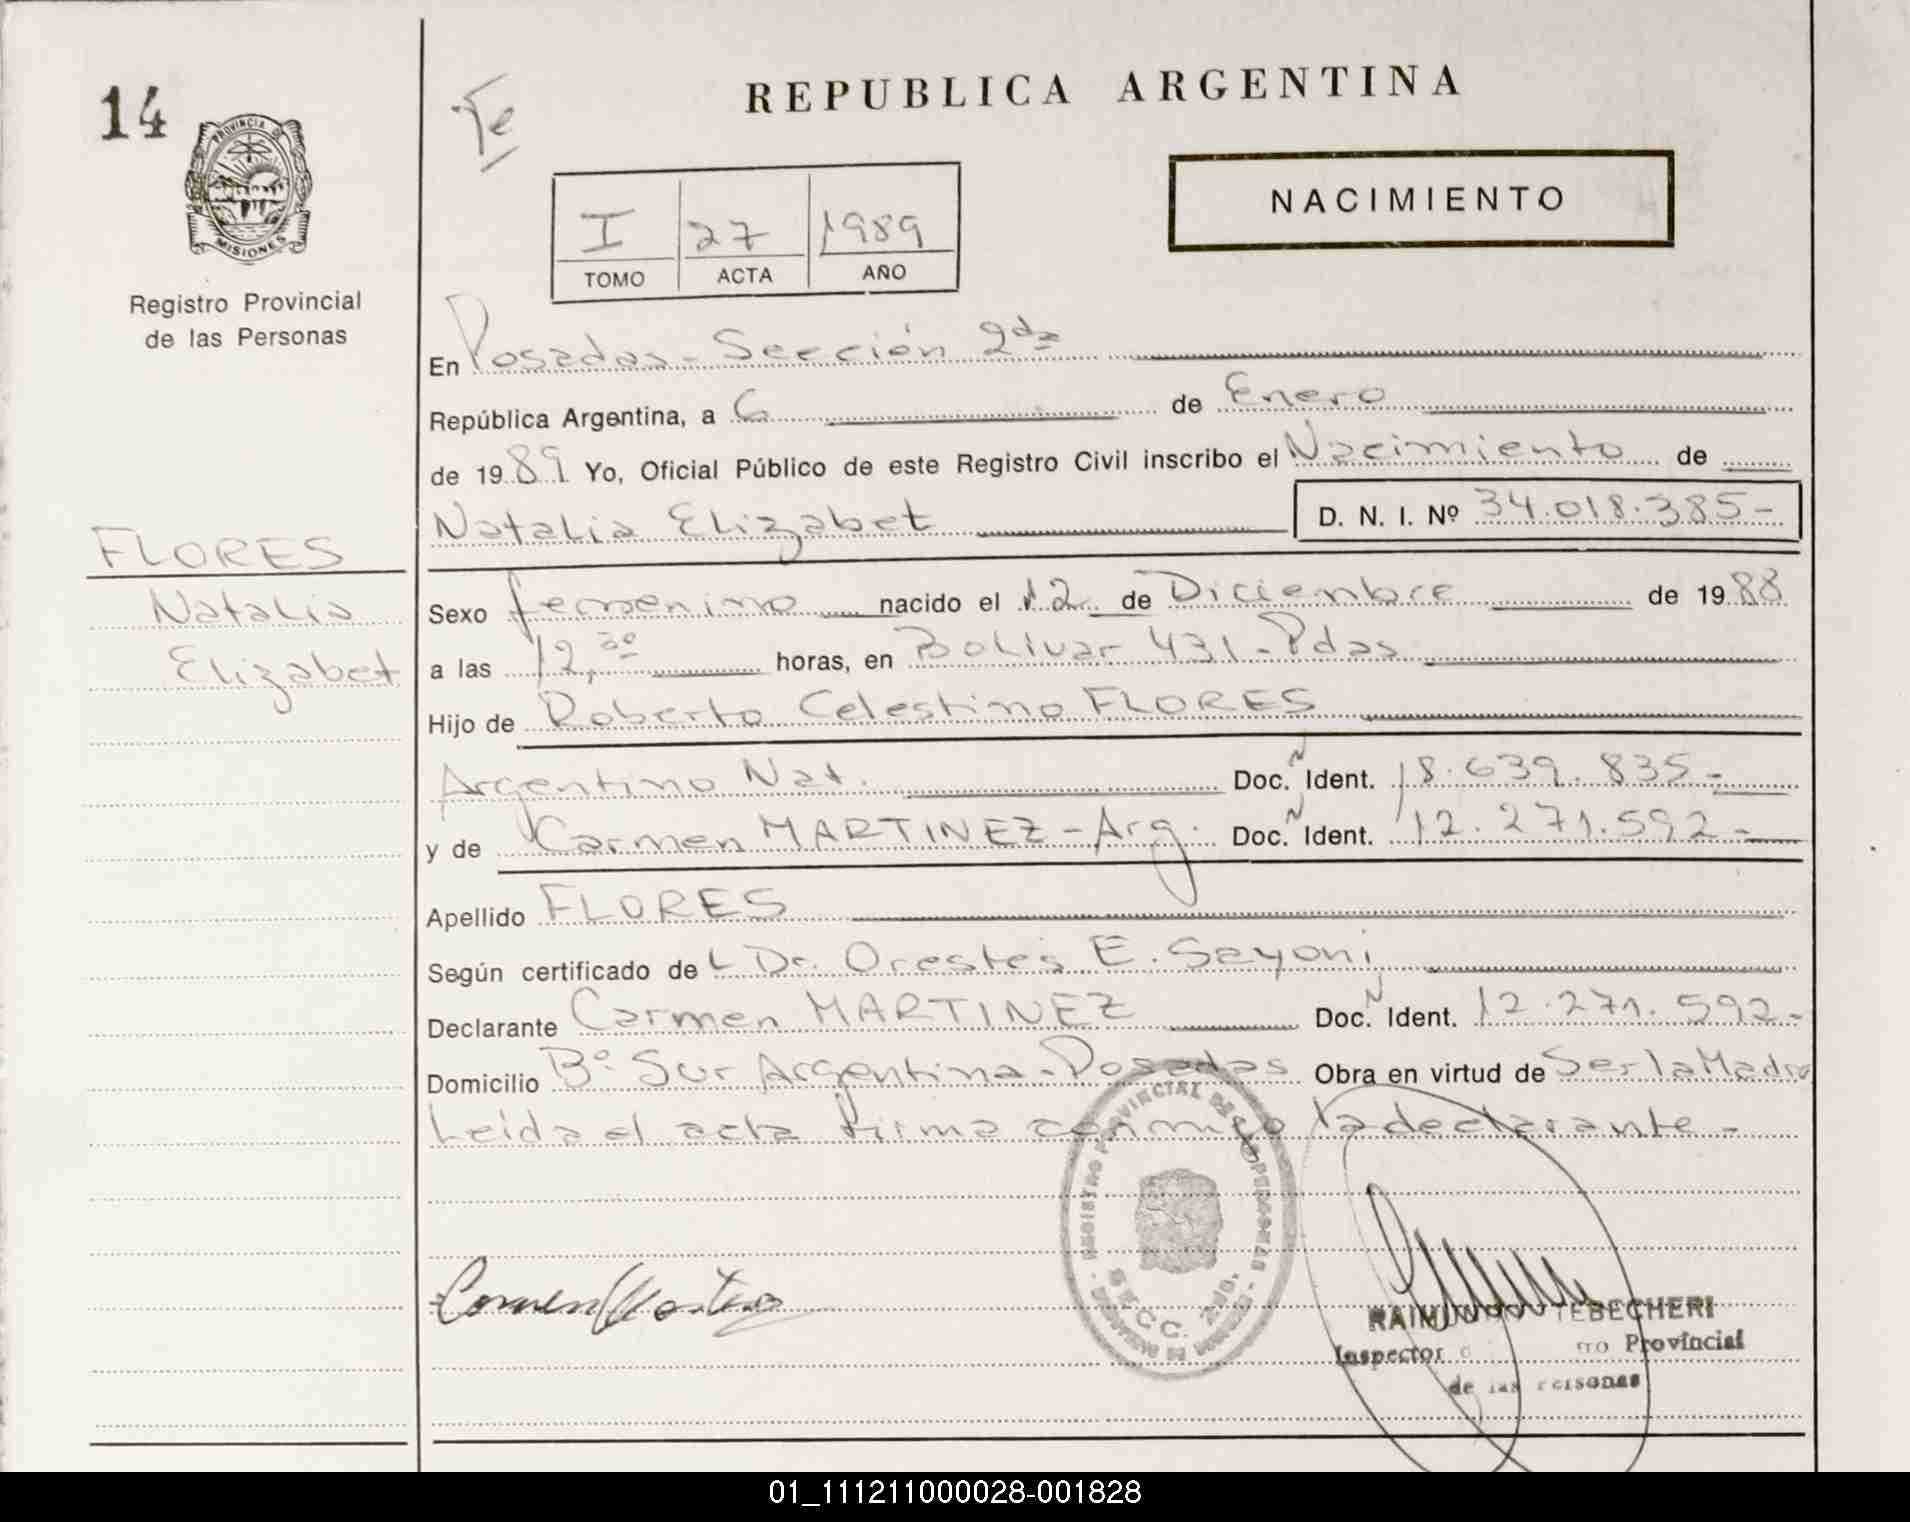 14
Te
REPUBLICA ARGENTINA
PROVINCIA DE
MISIONES
Registro Provincial
de las Personas
NACIMIENTO
I 27 1989
TOMO ACTA AÑO
En Posadas - Sección 2da
República Argentina, a 6 de Enero
de 1989 Yo, Oficial Público de este Registro Civil inscribo el Nacimiento de
Natalia Elizabet D. N. I. Nº 34.018.385-
FLORES
Natalia
Elizabet
Sexo femenino nacido el 12 de Diciembre de 1988
a las 12,30 horas, en Bolivar 431 - Pdas
Hijo de Roberto Celestino FLORES
Argentino Nat. Doc. N Ident. 18.639.835-
y de Carmen MARTINEZ - Arg. Doc. N Ident. 12.271.592-
Apellido FLORES
Según certificado de L Dr. Orestes E.
Declarante Carmen MARTINEZ Doc. N Ident. 12.271.592-
Domicilio Bº Sur Argentina - Posadas Obra en virtud de Ser la Madre
Leída el acta firma conmigo la declarante -
REGISTRO PROVINCIAL DE LAS PERSONAS
SECC. 2da.
Carmen Martinez
RAIMUNDO TEBECHERI
Inspector Provincial
de las Personas
01_111211000028-001828